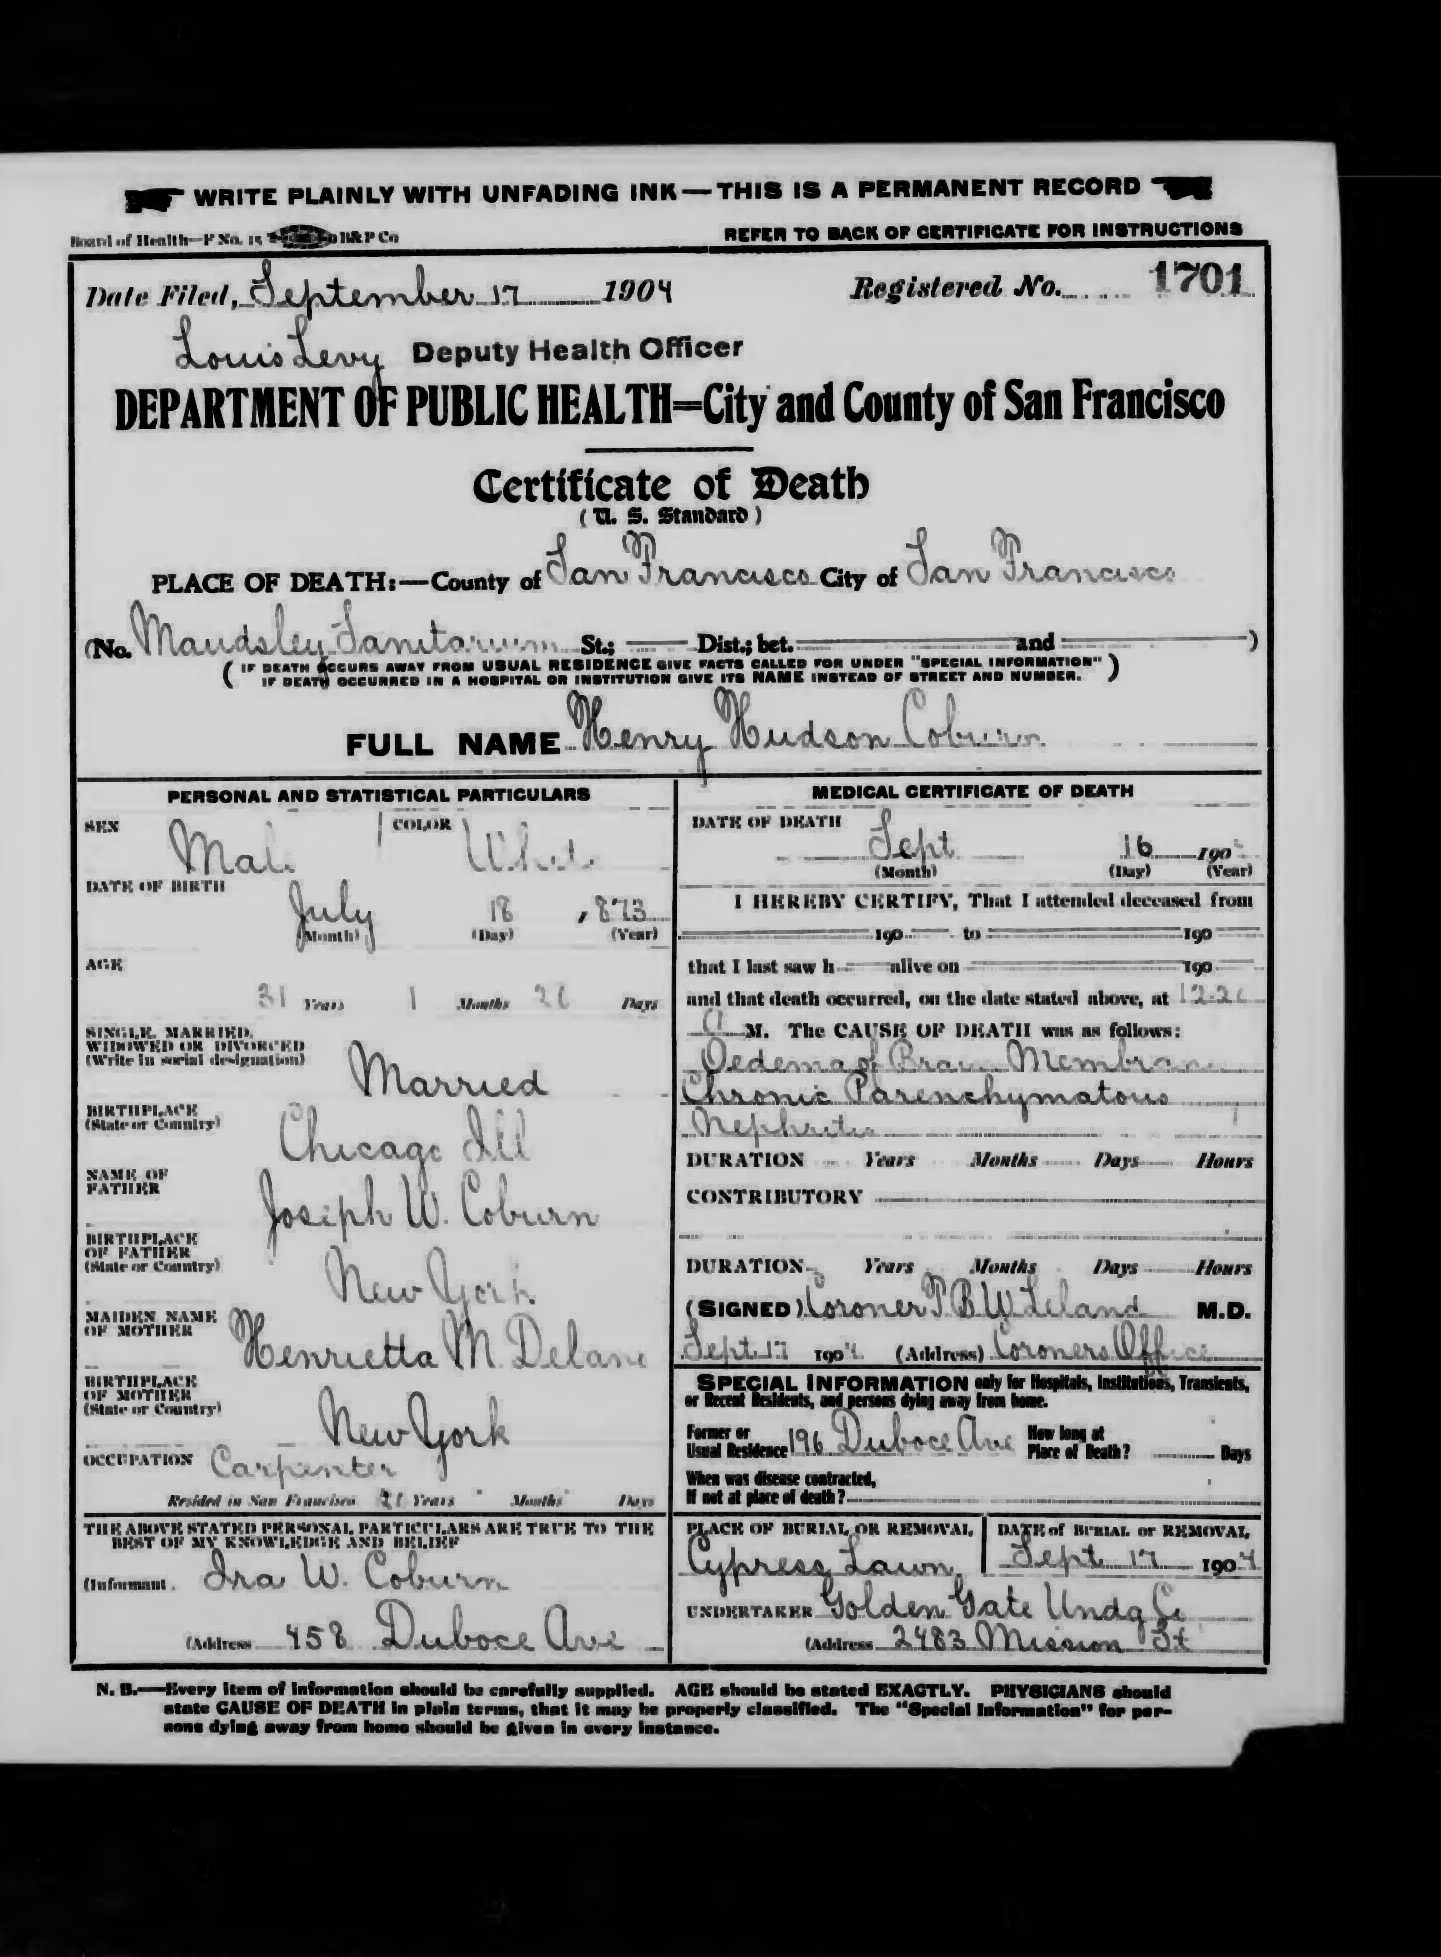 WRITE PLAINLY WITH UNFADING INK—THIS IS A PERMANENT RECORD
Board of Health—F No. 15 B&P Co
REFER TO BACK OF CERTIFICATE FOR INSTRUCTIONS
Date Filed, September 17 1904 Registered No. 1701
Louis Levy Deputy Health Officer
DEPARTMENT OF PUBLIC HEALTH=City and County of San Francisco
Certificate of Death
(U. S. Standard)
PLACE OF DEATH:—County of San Francisco City of San Francisco
(No. Maudsley Sanitarium St.; Dist.; bet. and )
(IF DEATH OCCURS AWAY FROM USUAL RESIDENCE GIVE FACTS CALLED FOR UNDER "SPECIAL INFORMATION"
IF DEATH OCCURRED IN A HOSPITAL OR INSTITUTION GIVE ITS NAME INSTEAD OF STREET AND NUMBER.)
FULL NAME Henry Hudson Coburn
PERSONAL AND STATISTICAL PARTICULARS
SEX Male COLOR White
DATE OF BIRTH
July 18 , 873
(Month) (Day) (Year)
AGE
31 Years 1 Months Days
SINGLE, MARRIED,
WIDOWED OR DIVORCED
(Write in social designation)
Married
BIRTHPLACE
(State or Country)
Chicago Ill
NAME OF
FATHER
Joseph W. Coburn
BIRTHPLACE
OF FATHER
(State or Country)
New York
MAIDEN NAME
OF MOTHER
Henrietta M. Delano
BIRTHPLACE
OF MOTHER
(State or Country)
New York
OCCUPATION Carpenter
Resided in San Francisco Years Months Days
THE ABOVE STATED PERSONAL PARTICULARS ARE TRUE TO THE
BEST OF MY KNOWLEDGE AND BELIEF
(Informant Ira W. Coburn
(Address 458 Duboce Ave
MEDICAL CERTIFICATE OF DEATH
DATE OF DEATH
Sept 16 190
(Month) (Day) (Year)
I HEREBY CERTIFY, That I attended deceased from
190 to 190
that I last saw h alive on 190
and that death occurred, on the date stated above, at
A M. The CAUSE OF DEATH was as follows:
Oedema of Brain Membrane
Chronic Parenchymatous
Nephritis
DURATION Years Months Days Hours
CONTRIBUTORY
DURATION Years Months Days Hours
(SIGNED) Coroner T B W Leland M.D.
Sept 17 1904 (Address) Coroners Office
SPECIAL INFORMATION only for Hospitals, Institutions, Transients,
or Recent Residents, and persons dying away from home.
Former or
Usual Residence 196 Duboce Ave
How long at
Place of Death? Days
When was disease contracted,
If not at place of death?
PLACE OF BURIAL OR REMOVAL
Cypress Lawn
DATE of BURIAL or REMOVAL
Sept 17 1904
UNDERTAKER Golden Gate Undg Co
(Address 2483 Mission St
N. B.—Every item of information should be carefully supplied. AGE should be stated EXACTLY. PHYSICIANS should
state CAUSE OF DEATH in plain terms, that it may be properly classified. The "Special Information" for per-
sons dying away from home should be given in every instance.